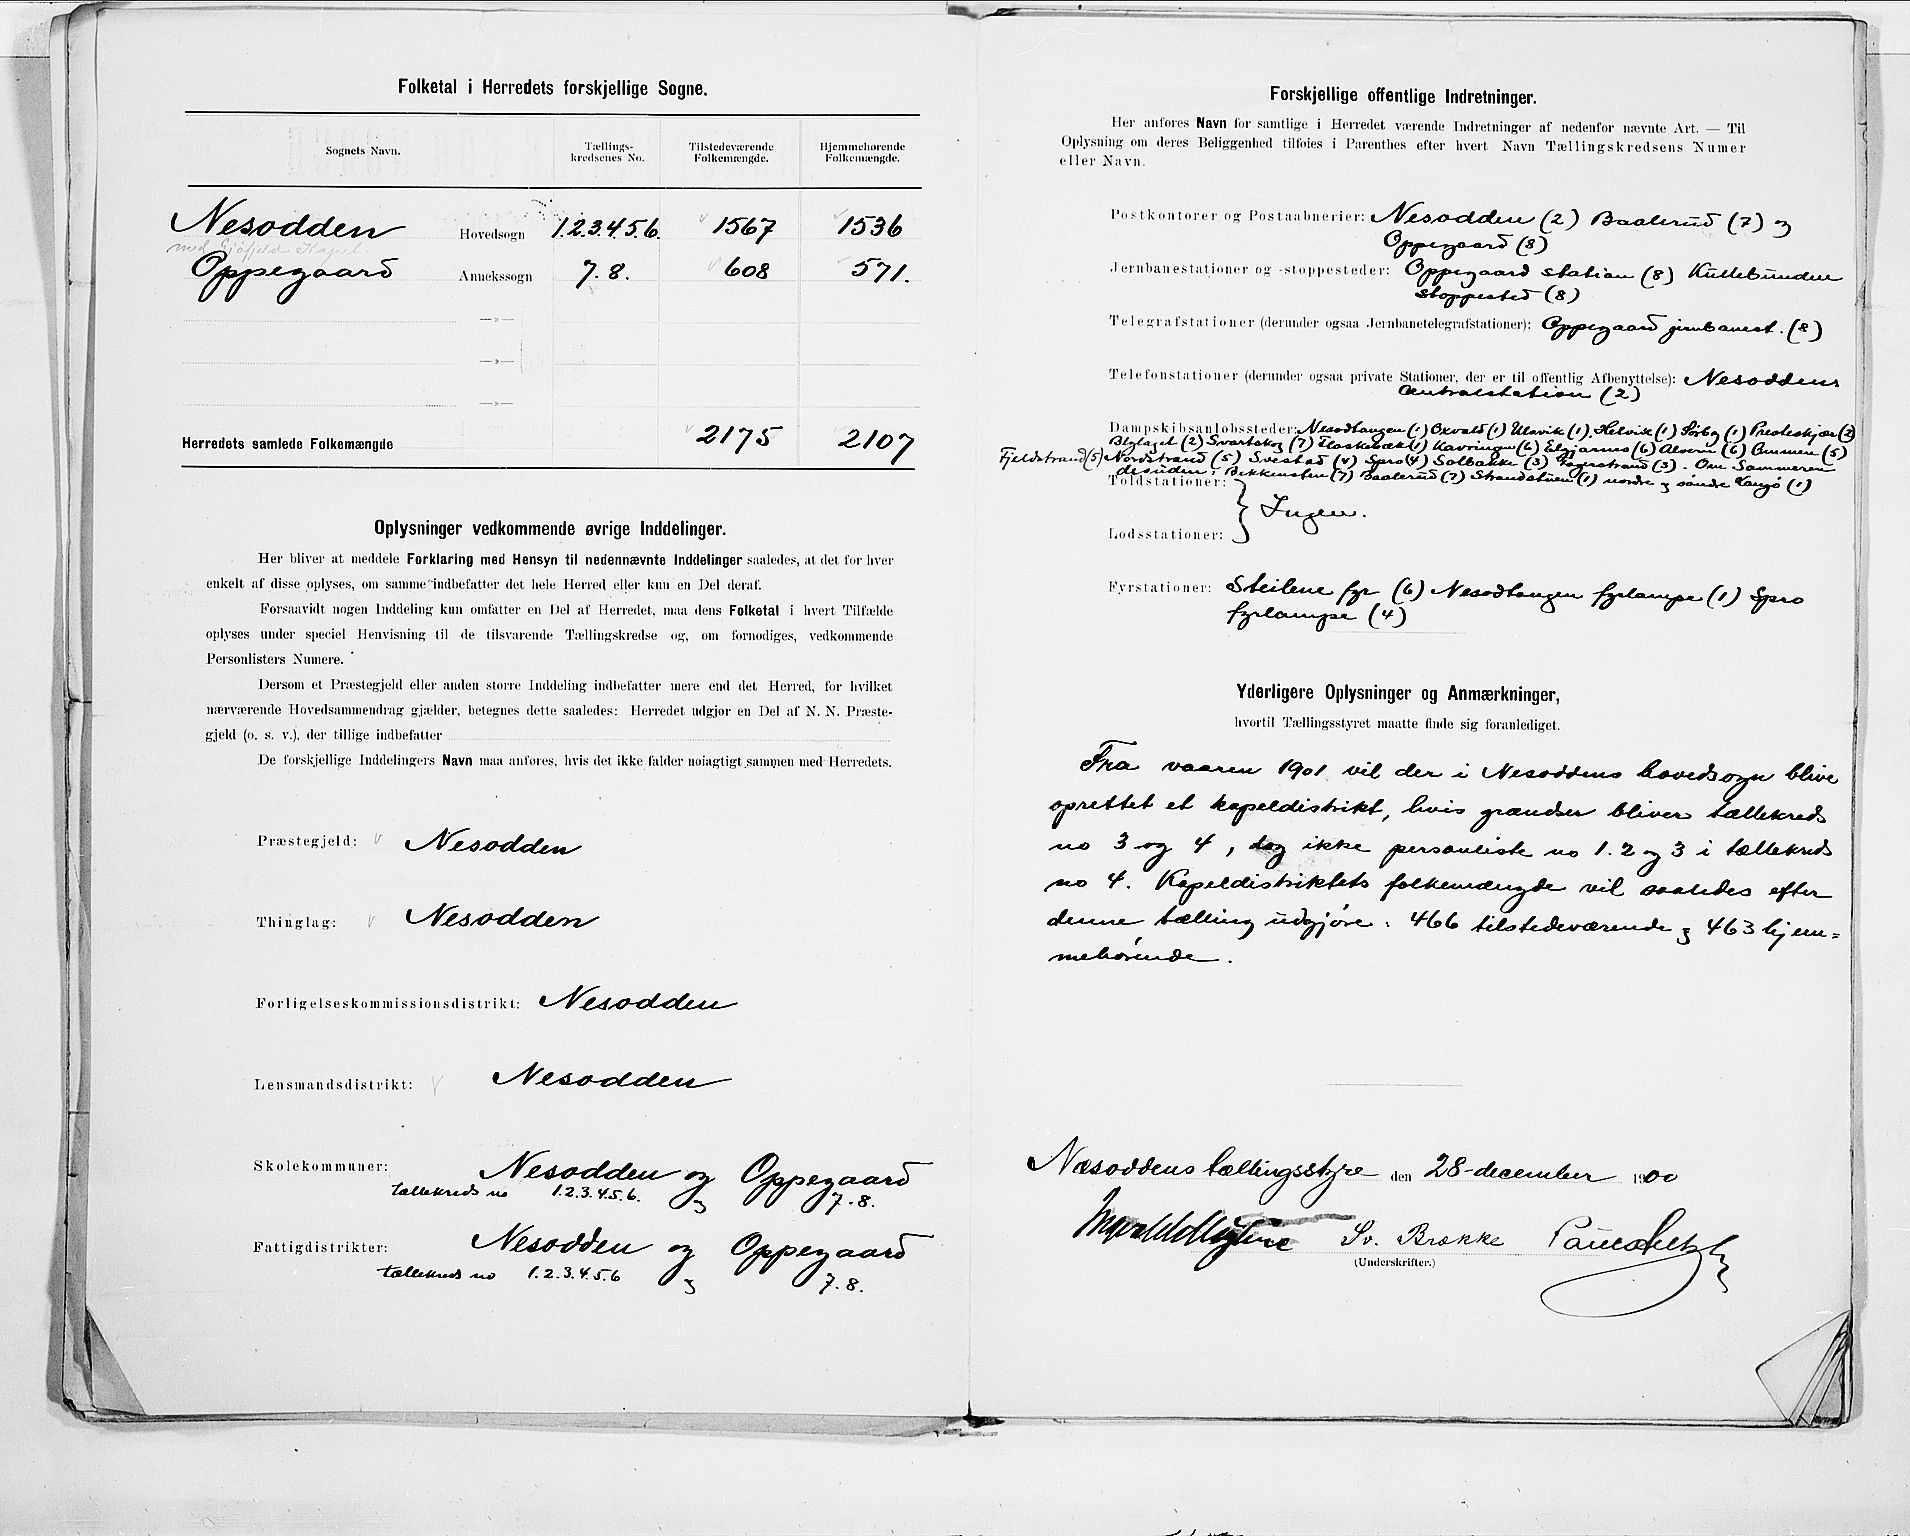 Folketal i Herredets forskjellige Sogne.
Sognets Navn. Tællings- kredsenes No. Tilstedeværende Folkemængde. Hjemmehørende Folkemængde.
Nesodden Hovedsogn 1.2.3.4.5.6. 1567 1536
med Gjøfjeld Kapel
Oppegaard Annekssogn 7. 8. 608 571.
—»—
—»—
—»—
Herredets samlede Folkemængde 2175 2107
Oplysninger vedkommende øvrige Inddelinger.
Her bliver at meddele Forklaring med Hensyn til nedennævnte Inddelinger saaledes, at det for hver
enkelt af disse oplyses, om samme indbefatter det hele Herred eller kun en Del deraf.
Forsaavidt nogen Inddeling kun omfatter en Del af Herredet, maa dens Folketal i hvert Tilfælde
oplyses under speciel Henvisning til de tilsvarende Tællingskredse og, om fornødiges, vedkommende
Personlisters Numere.
Dersom et Præstegjeld eller anden større Inddeling indbefatter mere end det Herred, for hvilket
nærværende Hovedsammendrag gjælder, betegnes dette saaledes: Herredet udgjør en Del af N. N. Præste-
gjeld (o. s. v.), der tillige indbefatter
De forskjellige Inddelingers Navn maa anføres, hvis det ikke falder nøiagtigt sammen med Herredets.
Præstegjeld: Nesodden
Thinglag: Nesodden
Forligelseskommissionsdistrikt: Nesodden
Lensmandsdistrikt: Nesodden
Skolekommuner: Nesodden og Oppegaard
tællekreds no 1.2.3.4.5.6. og 7.8.
Fattigdistrikter: Nesodden og Oppegaard
tællekreds no 1.2.3.4.5.6 og 7.8.
Forskjellige offentlige Indretninger.
Her anføres Navn for samtlige i Herredet værende Indretninger af nedenfor nævnte Art. — Til
Oplysning om deres Beliggenhed tilføies i Parenthes efter hvert Navn Tællingskredsens Numer
eller Navn.
Postkontorer og Postaabnerier: Nesodden (2) Baalerud (7) og
Oppegaard (8)
Jernbanestationer og -stoppesteder: Oppegaard station (8) Kullebunden
stoppested (8)
Telegrafstationer (derunder ogsaa Jernbanetelegrafstationer): Oppegaard jernbanest. (8)
Telefonstationer (derunder ogsaa private Stationer, der er til offentlig Afbenyttelse): Nesoddens
centralstation (2)
Dampskibsanløbssteder: Nesodtangen (1) Oxvald (1) Ulsvik (1). Helvik (1) Sørby (1) Presteskjær (2)
Blylaget (2) Svartskog (7) Flaskebæk (1) Kavringen (6) Elgjarnes (6) Alvern (6) Ommen (5)
Fjeldstrand (5) Nordstrand (5) Svestad (4) Spro (4) Solbakke (3) Fagerstrand (3). Om Sommeren
desuden: Bekkensten (7) Baalerud (7) Strandstuen (1) nordre og søndre Langø (1)
Toldstationer:
Ingen.
Lodsstationer:
Fyrstationer: Steilene fyr (6) Nesodtangen fyrlampe (1) Spro
fyrlampe (4)
Yderligere Oplysninger og Anmærkninger,
hvortil Tællingsstyret maatte finde sig foranlediget.
Fra vaaren 1901 vil der i Nesoddens hovedsogn blive
oprettet et kapeldistrikt, hvis grændser bliver tællekreds
no 3 og 4, dog ikke personliste no 1. 2 og 3 i tællekreds
no 4. Kapeldistriktets folkemængde vil saaledes efter
denne tælling udgjøre: 466 tilstedeværende og 463 hjem=
mehørende.
Næsoddens tællingsstyre den 28-december 1900
Sv. Brække
(Underskrifter.)